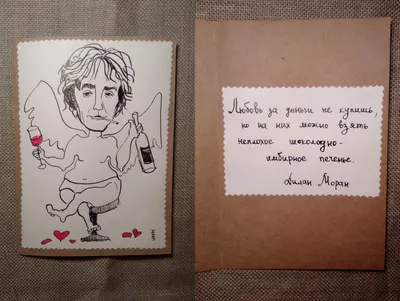 Любовь за деньги не купишь,
но на них можно взять
неплохое шоколадно-
имбирное печенье.
Дилан Моран